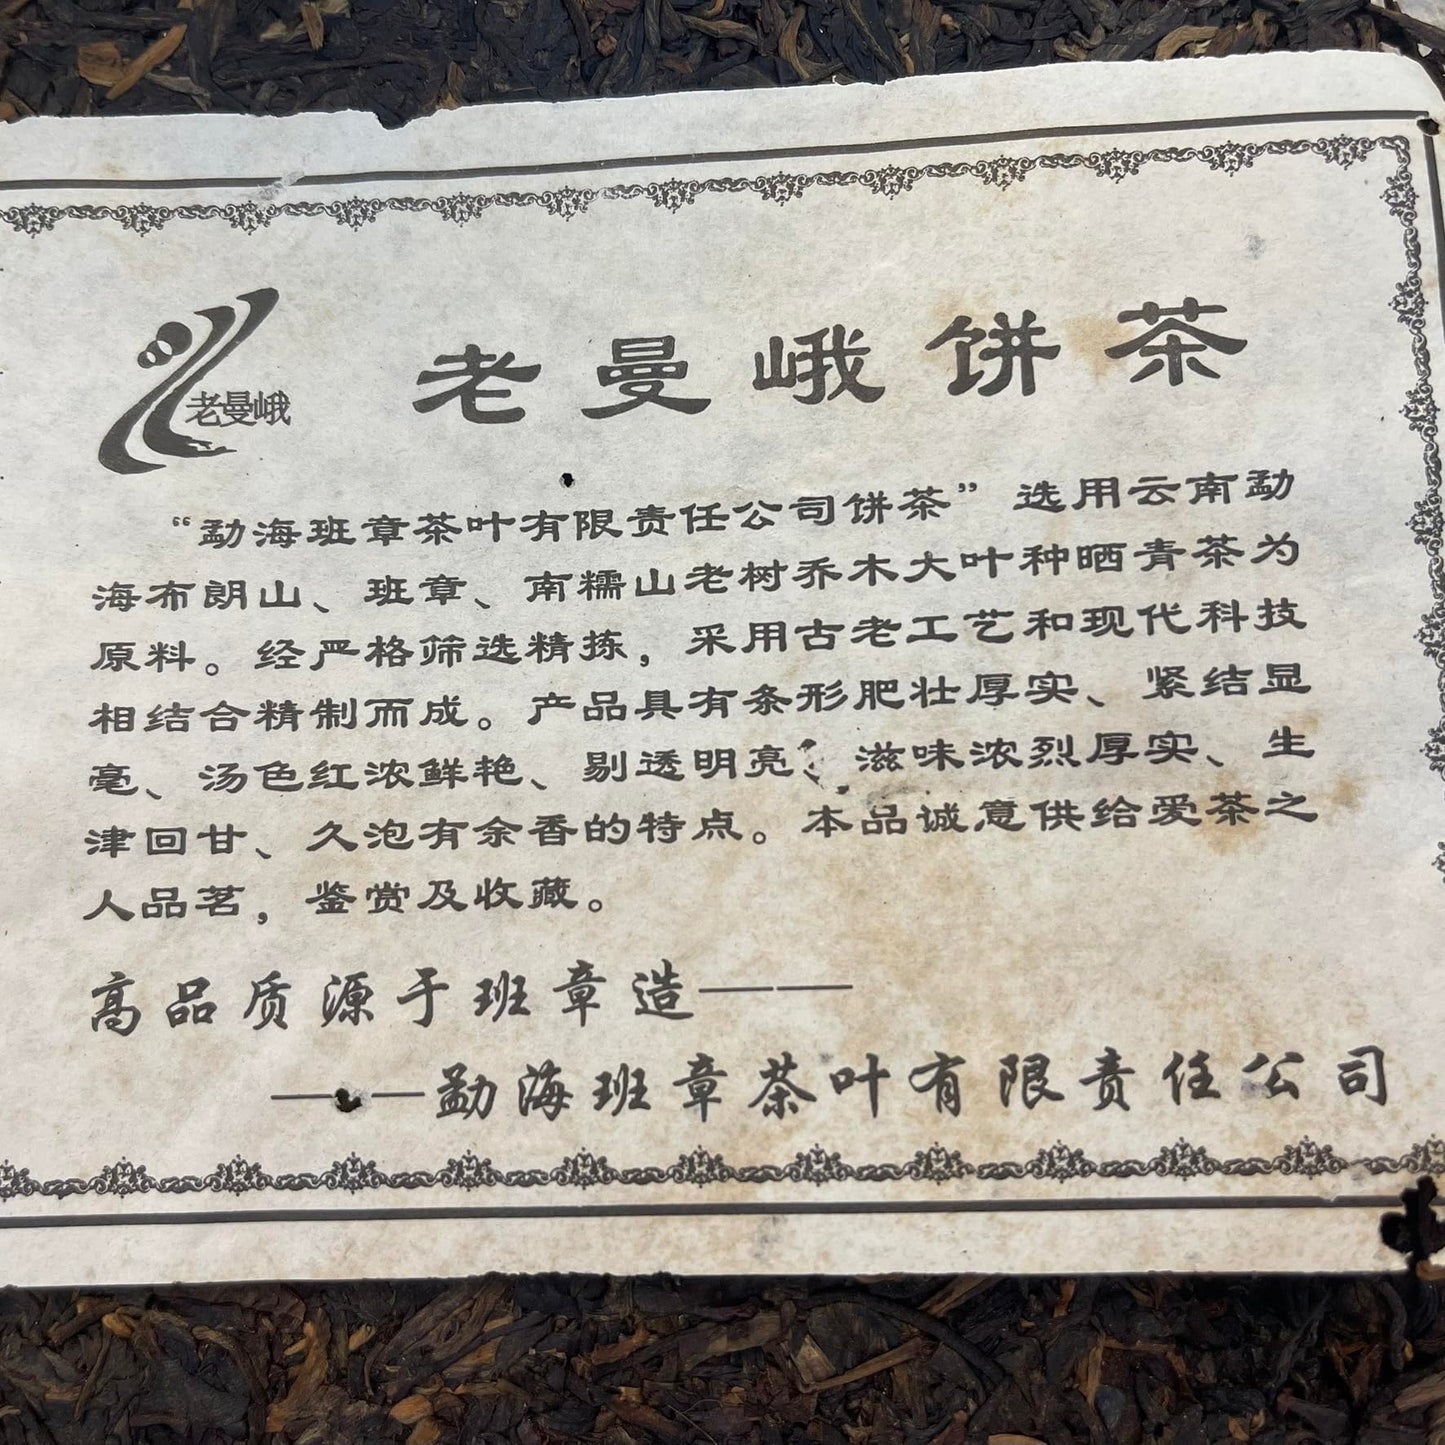 老曼峨
老曼峨饼茶
“勐海班章茶叶有限责任公司饼茶”选用云南勐
海布朗山、班章、南糯山老树乔木大叶种晒青茶为
原料。经严格筛选精拣，采用古老工艺和现代科技
相结合精制而成。产品具有条形肥壮厚实、紧结显
毫、汤色红浓鲜艳、剔透明亮、滋味浓烈厚实、生
津回甘、久泡有余香的特点。本品诚意供给爱茶之
人品茗，鉴赏及收藏。
高品质源于班章造——
——勐海班章茶叶有限责任公司